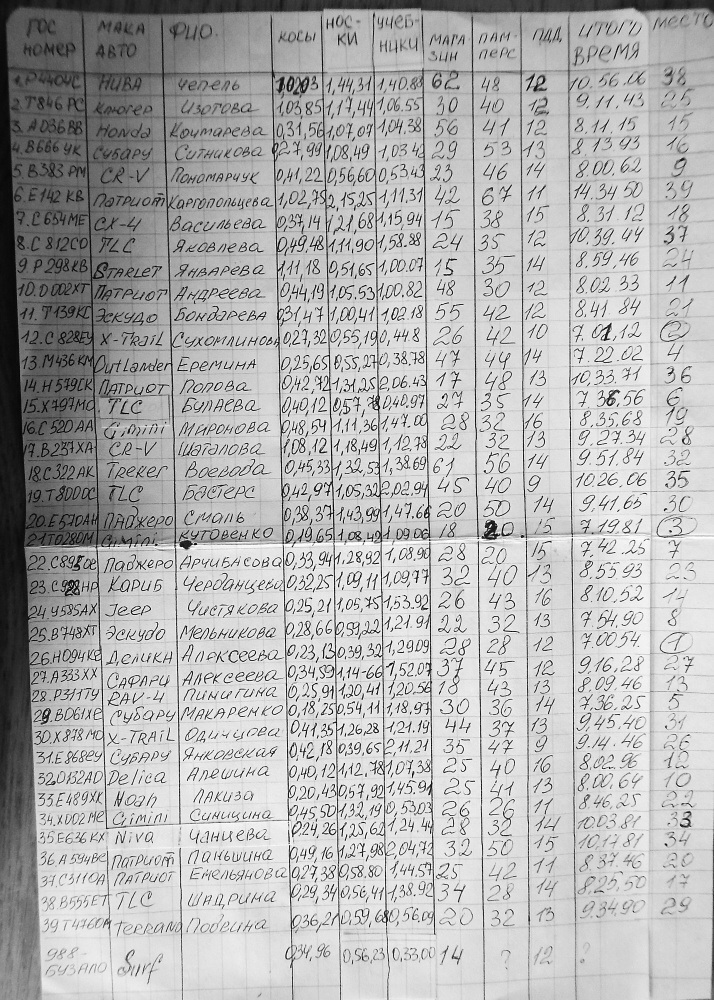 ГОС НОМЕР МАКА АВТО ФИО. КОСЫ НОС-КИ УЧЕБ-НИКИ МАГА-ЗИН ПАМ-ПЕРС ПДД ИТОГО ВРЕМЯ МЕСТО
1. НИВА Чепель 1,44,31 1,40.83 62 48 12 10.56.06 38
2.Т846РС Клюгер Изотова 1.03,85 1,17,44 1,06.55 30 40 12 9.11.43 25
3.А036ВВ Honda Кочмарева 0,31,56 1,07,07 1,04.38 56 41 12 8.11.15 15
4.В686УК СУБАРУ Ситникова 0,27,99 1,08,49 1,03.42 29 53 13 8.13 93 16
5.В383РМ CR-V Пономарчук 0,41,22 0,56,60 0,53.43 23 46 14 8.00.62 9
6.Е142КВ ПАТРИОТ Каргопольцева 1,02,75 2,15,25 1,11.31 42 67 11 14.34 50 39
7.С654МЕ СХ-4 Васильева 0,37,14 1,21,68 1,15,94 15 38 15 8.31.12 18
8.С812СО TLC Яковлева 0,49,48 1,11,90 1,58.88 24 35 12 10.39.44 37
9 Р298КВ STARLET Январева 1,11,18 0,51,65 1,00.07 15 35 14 8.59.46 24
10.О002ХТ ПАТРИОТ Андреева 0,44,19 1,05.53 1,00.82 48 30 12 8.02 33 11
11.Т139КС Эскудо Бондарева 0,31,47 1,00,41 1,02.18 55 42 12 8.41.84 21
12.С828ЕУ X-TraiL Сухомлинова 0,27,32 0,55,19 0,44.8 26 42 10 7.01,12 2
13.М436КМ Outlander Еремина 0,25,65 0,55,27 0,38.78 47 44 14 7.22.02 4
14.Н579СК ПАТРИОТ Попова 0,42,72 1,31,25 2,06.43 17 48 13 10.33.71 36
15.Х797МО TLC Булаева 0,40,12 0,57,78 0,40,97 27 35 14 7.36,56 6
16.С520АА Gimini Миронова 0,48,54 1,11,36 1,47.00 28 32 16 8.35,68 19
17.В237ХА CR-V Шаталова 1,08,12 1,18,49 1,12.78 22 32 13 9.27.34 28
18.С322АК Treker Воевода 0,45,33 1,32,53 1,38.69 61 56 14 9.51.84 32
19.Т800ОС TLC Бастерс 0,42,97 1,05,32 2,02.94 45 40 9 10.26.06 35
20.Е570АН ПАДЖЕРО Смаль 0,38,37 1,43,99 1,47.66 20 50 14 9.41.65 30
21.Т028ОМ Gimini Кутовенко 0,19,65 1,08,42 1,09.06 18 20 15 7.19.81 3
22.С895ОЕ Паджеро Арчибасова 0,33,94 1,28,92 1,08,90 28 20 15 7.42.25 7
23. КАРИБ Черданцева 0,32,25 1,09,11 1,09,77 32 40 13 8.55.93 23
24.У585АХ Jeep Чистякова 0,25,21 1,05,75 1,53.92 26 43 16 8.10.52 14
25.В748ХТ Эскудо Мельникова 0,28,66 0,59,22 1,21.91 22 32 13 7.54,90 8
26.Н094КС Делика Алексеева 0,23,13 0,39,32 1,29.09 28 28 12 7.0054. 1
27.А333ХХ САФАРИ Алексеева 0,34,59 1,14-66 1,52.07 37 45 12 9.16,28 27
28.Р311ТУ RAV-4 Пинигина 0,25,91 1,20,41 1,20.56 18 43 13 8.09.46 13
29.ВО61ХЕ Субару МАКАРЕНКО 0,18,25 0,54,11 1,18.97 30 36 14 7.36,25 5
30.Х878МО X-TRAIL Одинцова 0,41,35 1,26,28 1,21.19 44 37 13 9.45.40 31
31.Е868ЕУ СУБАРУ Янковская 0,42,18 0,39,65 2,11.21 35 47 9 9.14.46 26
32.О132АО Delica Алешина 0,40,12 1,12,78 1,07,38 25 40 16 8.02.96 12
33.Е489ХК Noah Лакиза 0,20,43 0,57,92 1,45.91 25 41 13 8.00.64 10
34.Х002МЕ Gimini Синицина 0,45,50 1,32,19 0,53,03 26 26 11 8.46.25 22
35.Е636КХ Niva Чанцева 0,24,26 1,25,62 1,24.44 28 32 14 10.03.81 33
36.А594ВС ПАТРИОТ Паньшина 0,49,16 1,27,98 2,04,72 32 50 15 10.17.81 34
37.С311ОА ПАТРИОТ Емельянова 0,27,38 0,58,80 1,44.57 25 42 11 8.37.46 20
38.В555ЕТ TLC Шадрина 0,29,34 0,56,41 1,38.92 34 28 14 8.25,50 17
39.Т476ОМ Terrano Подвина 0,36,21 0,59,68 0,56,09 20 32 13 9.34.90 29
988- БУЗАЛО Surf 0,34,96 0,56,23 0,33,00 14 ? 12 ?